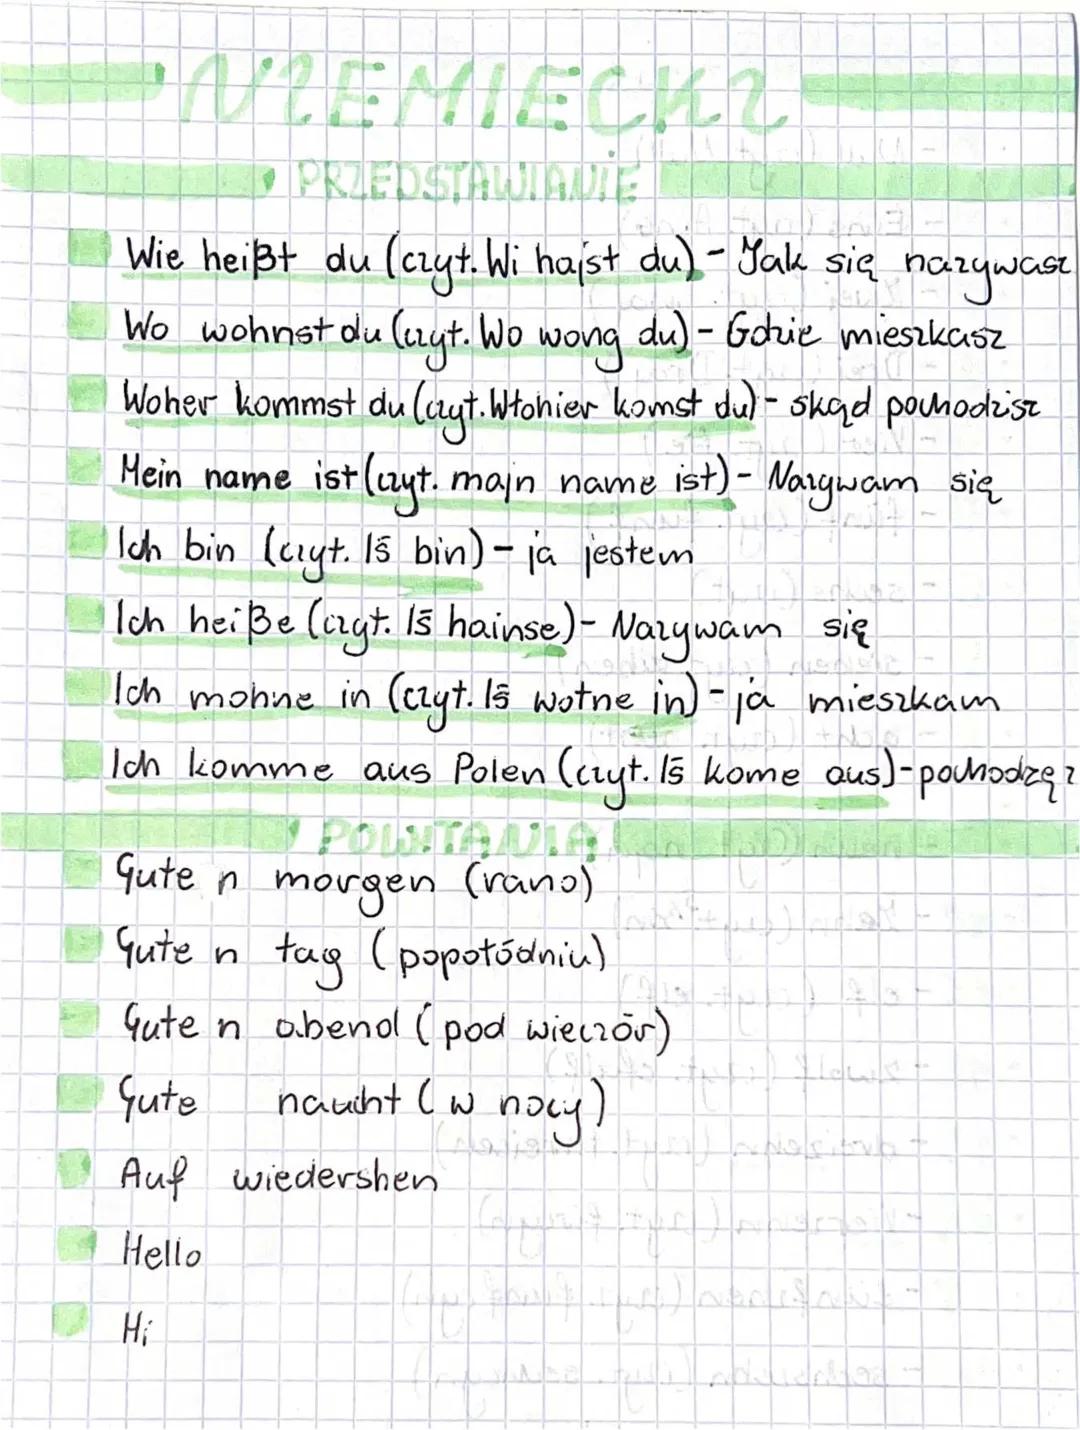 NIEMIECKI
PRZEDSTAWIANIE
Wie heißt du (czyt. Wi hajst du) - Jak się nazywasz
Wo wohnst du (czyt. Wo wong du) - Gdzie mieszkasz
Woher kommst du (czyt. Wtohier komst du) - skąd pochodzisz
Mein name ist (czyt. majn name ist) - Nazywam się
Ich bin (czyt. Iś bin) - ja jestem
Ich heiße (czyt. Iś hainse) - Nazywam się
Ich mohne in (czyt. Iś wotne in) - ja mieszkam
Ich komme aus Polen (czyt. Iś kome aus) - pochodzę z
POWITANIA
Gute n morgen (rano)
Gute n tag (popołódniu)
Gute n abend (pod wieczór)
Gute naucht (w nocy)
Auf wiedershen
Hello
Hi